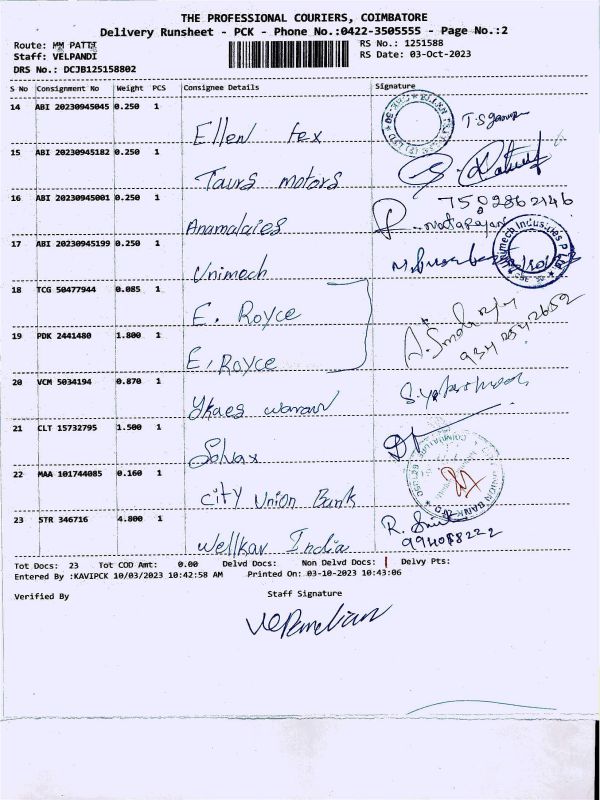 THE PROFESSIONAL COURIERS, COIMBATORE
Delivery Runsheet - PCK - Phone No.:0422-3505555 - Page No.:2
Route: MM PATTI
RS No.: 1251588
Staff: VELPANDI
RS Date: 03-Oct-2023
DRS No.: DCJB125158802
S No Consignment No Weight PCS Consignee Details Signature
14 ABI 20230945045 0.250 1
Ellen tex
15 ABI 20230945182 0.250 1
Taurs motors
16 ABI 20230945001 0.250 1
7502862146
Anamalaies
17 ABI 20230945199 0.250 1
Unimech
18 TCG 50477944 0.085 1
E. Royce
19 PDK 2441480 1.800 1
E. Royce
20 VCM 5034194 0.870 1
21 CLT 15732795 1.500 1
22 MAA 101744085 0.160 1
City Union Bank
23 STR 346716 4.800 1
India
Tot Docs: 23 Tot COD Amt: 0.00 Delvd Docs: Non Delvd Docs: Delvy Pts:
Entered By :KAVIPCK 10/03/2023 10:42:58 AM Printed On: 03-10-2023 10:43:06
Verified By Staff Signature